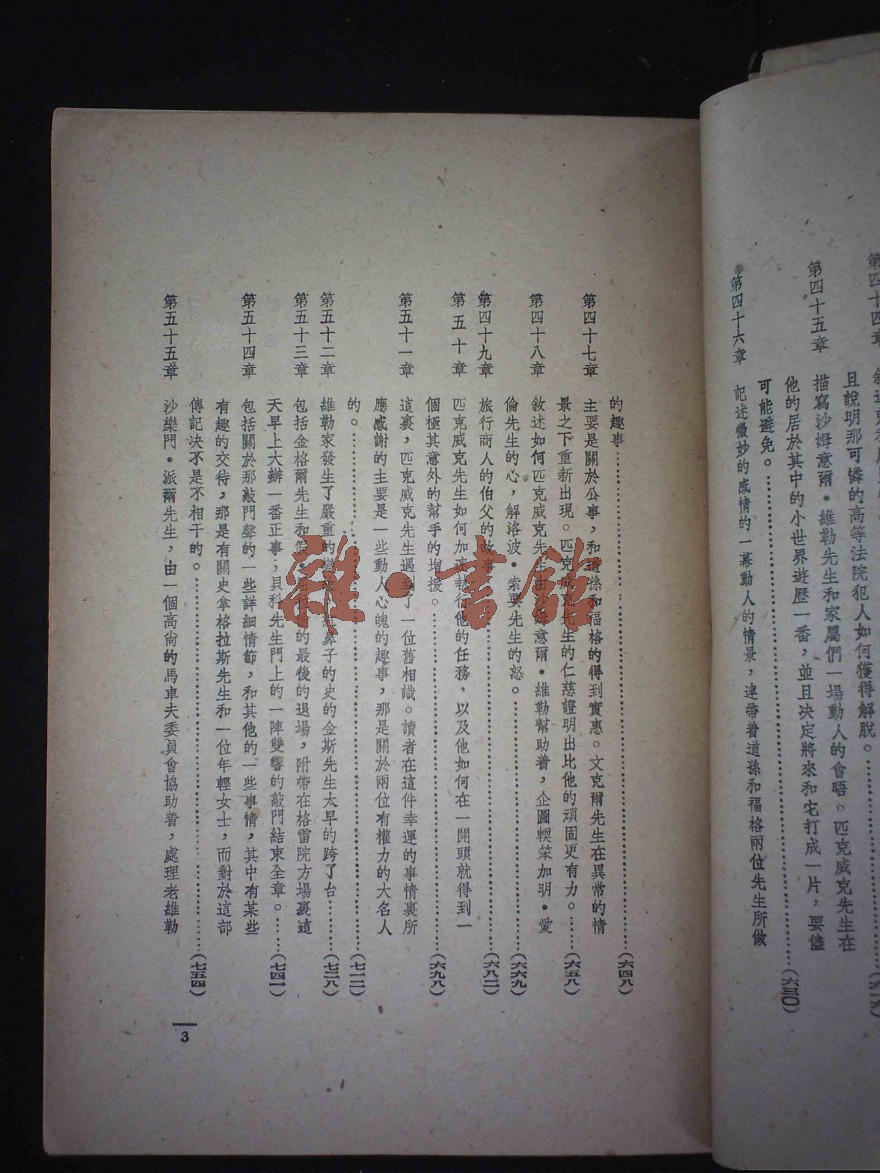 第四十五章 描寫沙姆意爾•維勒先生和家屬們一場動人的會晤。匹克威克先生在
他的居於其中的小世界遊歷一番,並且決定將來和它打成一片,要儘
可能避免。……(六三〇)
第四十六章 記述微妙的感情的一幕動人的情景,連帶着道孫和福格兩位先生所做
的趣事……(六四八)
第四十七章 主要是關於公事,和道孫和福格的得到實惠。文克爾先生在異常的情
景之下重新出現。匹克威克先生的仁慈證明出比他的頑固更有力。……(六五八)
第四十八章 敘述如何匹克威克先生由沙姆意爾•維勒幫助着,企圖輭笨加明•愛
倫先生的心,解洛波•索耍先生的怒。……(六六九)
第四十九章 旅行商人的伯父的故事……(六八二)
第五十章 匹克威克先生如何加速執行他的任務,以及他如何在一開頭就得到一
個極其意外的幫手的增援。……(六九八)
第五十一章 這裏,匹克威克先生遇到了一位舊相識。讀者在這件幸運的事情裏所
應感謝的主要是一些動人心魄的趣事,那是關於兩位有權力的大名人
的。……(七一二)
第五十二章 維勒家發生了嚴重的 鼻子的史的金斯先生太早的跨了台……(七二八)
第五十三章 包括金格爾先生和 的最後的退場,附帶在格雷院方場裏這
天早上大辦一番正事;貝科先生門上的一陣雙響的敲門結束全章。……(七四一)
第五十四章 包括關於那敲門聲的一些詳細情節,和其他的一些事情,其中有某些
有趣的交待,那是有關史拿格拉斯先生和一位年輕女士,而對於這部
傳記決不是不相干的。……(七五四)
第五十五章 沙樂門•派爾先生,由一個高尙的馬車夫委員會協助着,處理老維勒
3
且說明那可憐的高等法院犯人如何獲得解脫。
雜•書館